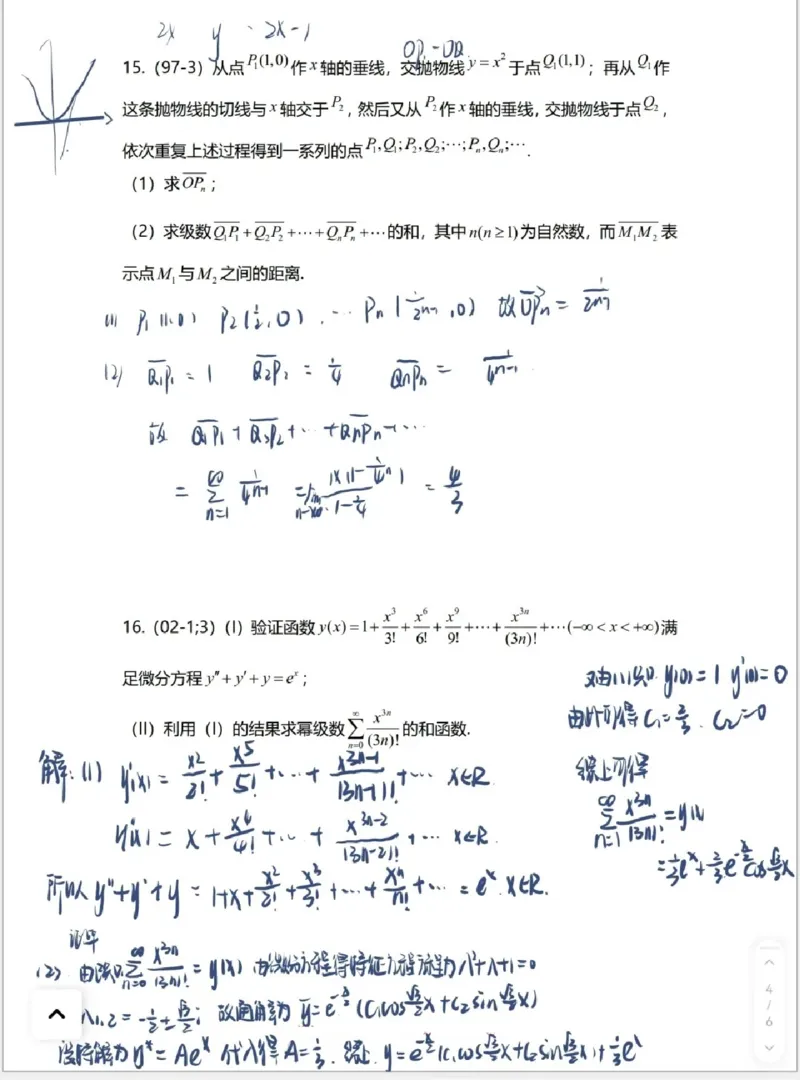 2x y = 2x-1
OP₁=OQ
15.（97-3）从点P₁(1,0)作x轴的垂线，交抛物线y=x²于点Q₁(1,1)；再从Q₁作
这条抛物线的切线与x轴交于P₂，然后又从P₂作x轴的垂线，交抛物线于点Q₂，
依次重复上述过程得到一系列的点P₁,Q₁;P₂,Q₂;⋯;Pₙ,Qₙ;⋯.
（1）求OPₙ；
（2）求级数Q₁P₁+Q₂P₂+⋯+QₙPₙ+⋯的和，其中n(n≥1)为自然数，而M₁M₂表
示点M₁与M₂之间的距离.
(1) P₁(1,0) P₂(1/2,0), ⋯ Pₙ(1/2ⁿ⁻¹,0) 故OPₙ=1/2ⁿ⁻¹
(2) Q₁P₁=1 Q₂P₂=1/4 QₙPₙ=1/4ⁿ⁻¹
故 Q₁P₁+Q₂P₂+⋯+QₙPₙ+⋯
=∑_{n=1}^{∞} 1/4ⁿ⁻¹ =lim_{n→∞} 1×(1-1/4ⁿ)/(1-1/4) =4/3
16.（02-1;3）（I）验证函数y(x)=1+x³/3!+x⁶/6!+x⁹/9!+⋯+x³ⁿ/(3n)!+⋯(-∞<x<+∞)满
足微分方程y″+y′+y=eˣ；
（II）利用（I）的结果求幂级数∑_{n=0}^{∞} x³ⁿ/(3n)!的和函数.
解：(1) y'(x)=x²/2!+x⁵/5!+⋯+x³ⁿ⁻¹/(3n-1)!+⋯ x∈R
y''(x)=x+x⁴/4!+⋯+x³ⁿ⁻²/(3n-2)!+⋯ x∈R
所以 y''+y'+y=1+x+x²/2!+x³/3!+⋯+xⁿ/n!+⋯=eˣ. x∈R.
证毕
(2) ∑_{n=0}^{∞} x³ⁿ/(3n)!=y(x) 由微分方程得特征方程为λ²+λ+1=0
λ₁,₂=-1/2±√3/2 i 故通解为 y=e^{-x/2}(C₁cos√3/2x+C₂sin√3/2x)
设特解为y*=Aeˣ 代入得A=1/3. 综上 y=e^{-x/2}(C₁cos√3/2x+C₂sin√3/2x)+1/3eˣ
又由(1)知 y(0)=1 y'(0)=0
由此可得C₁=2/3. C₂=0
综上可得
∑_{n=1}^{∞} x³ⁿ/(3n)!=y(x)
=1/3eˣ+2/3e^{-x/2}cos√3/2x
4
/
6